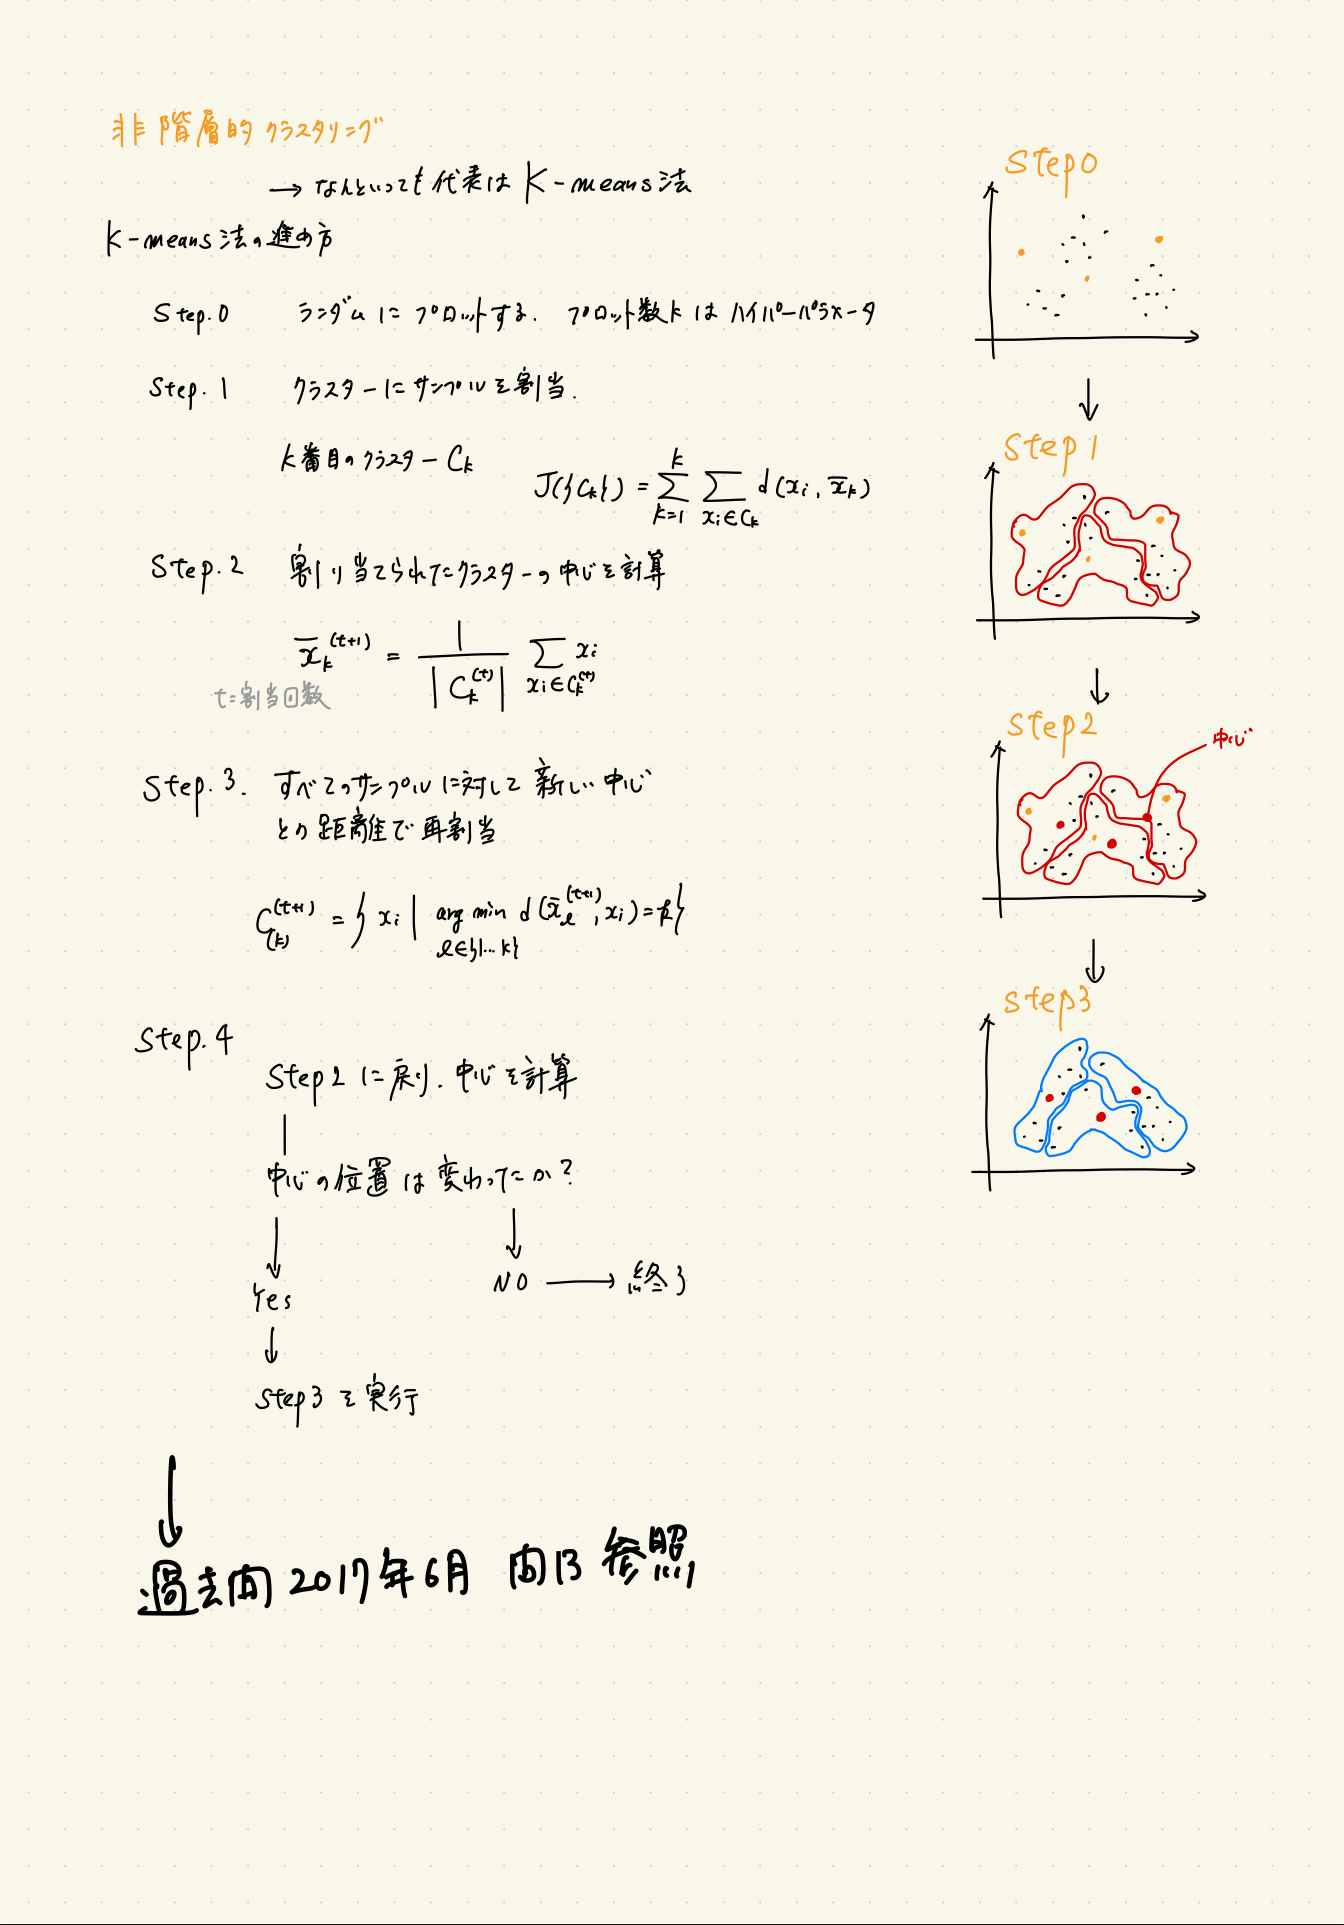 非階層的クラスタリング
→ なんといっても代表は K-means法
K-means法の進め方
Step.0 ランダムにプロットする. プロット数kはハイパーパラメータ
Step.1 クラスターにサンプルを割当.
k番目のクラスター C_k
J({C_k}) = Σ_{k=1}^{k} Σ_{x_i∈C_k} d(x_i, x̄_k)
Step.2 割り当てられたクラスターの中心を計算
x̄_k^{(t+1)} = 1/|C_k^{(t)}| Σ_{x_i∈C_k^{(t)}} x_i
t=割当回数
Step.3. すべてのサンプルに対して新しい中心
との距離で再割当
C_{(k)}^{(t+1)} = { x_i | arg min_{l∈{1...k}} d(x̄_l^{(t+1)}, x_i) = k }
Step.4
Step2に戻り. 中心を計算
中心の位置は変わったか?
Yes
NO → 終了
Step3を実行
過去問 2017年6月 問13 参照
Step0
Step1
Step2
中心
Step3